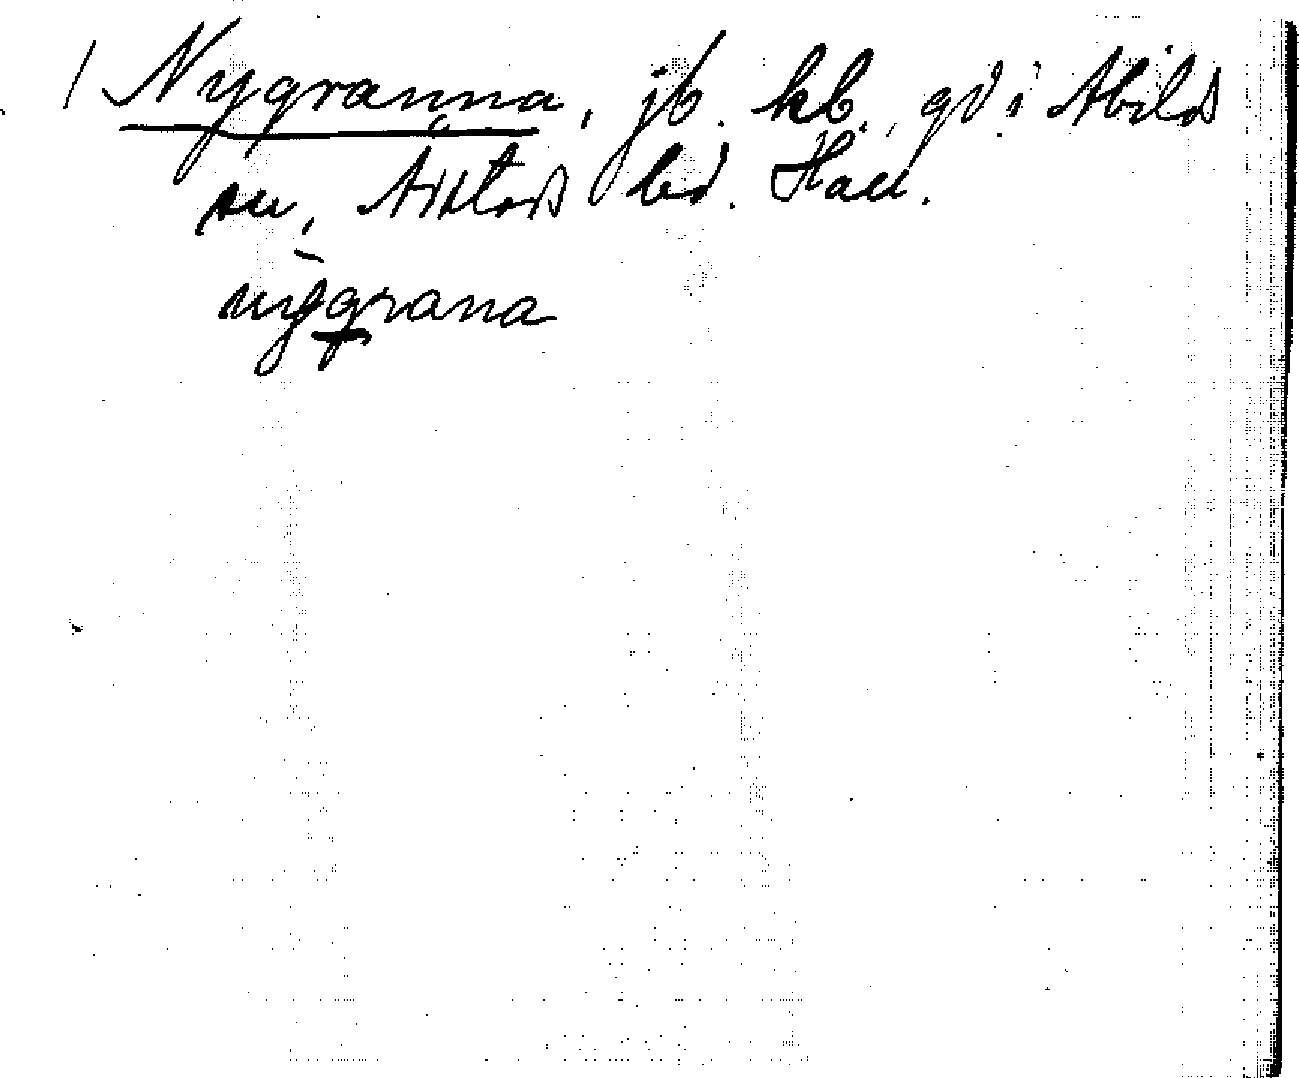 / Nygranna, jb. kb., gd i Abild
sn, Årstad hd. Hall.
nygrana